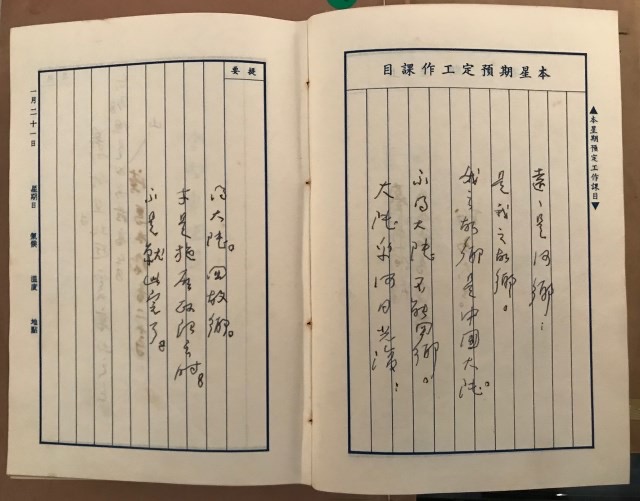 本星期預定工作課目
▲本星期預定工作課目▼
遠遠是何鄉:
是我之故鄉。
我之故鄉是中國大陸。
不得大陸不能回鄉。
大陸乎何日光復:
提要
得大陸。回故鄉。
才是施展政之時。
不是就此完了。
一月二十一日 星期日 氣候 溫度 地點